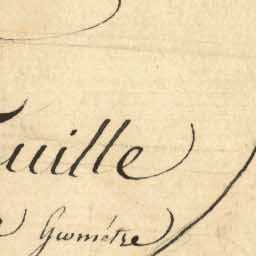 euille
Géométre